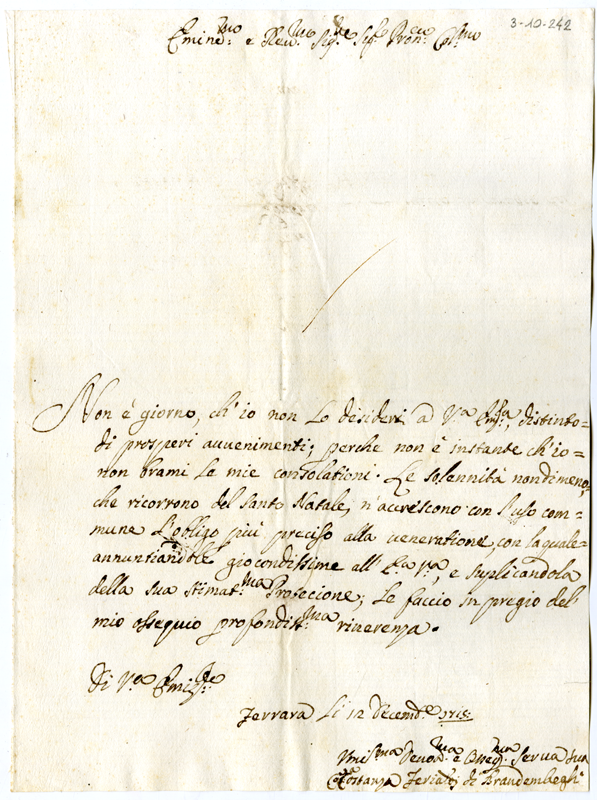 3-10-242
Emin.mo e Rev.mo Sig.re Sig.re Pron.e Col.mo
Non è giorno, ch'io non Lo disideri a V.a Em.za, distinto=
di prosperi avvenimenti; perche non è instante ch'io=
non brami Le mie consolationi. Le solennità nondimeno,
che ricorrono del Santo Natale, n'accrescono con l'uso com=
mune L'obligo più preciso alla veneratione, con la quale=
annuntiandole giocondissime all' E.a V.a, e suplicandola
della sua stimat.ma Protecione; Le faccio in pregio del
mio ossequio profondiss.ma riverenza.
Di V.ra Emi.za
Ferrara Li 12 Decemb.e 1715:
Umi.ma Devot.ma e Obleg.ma Serva Sua
Costanza di Brandemberghi